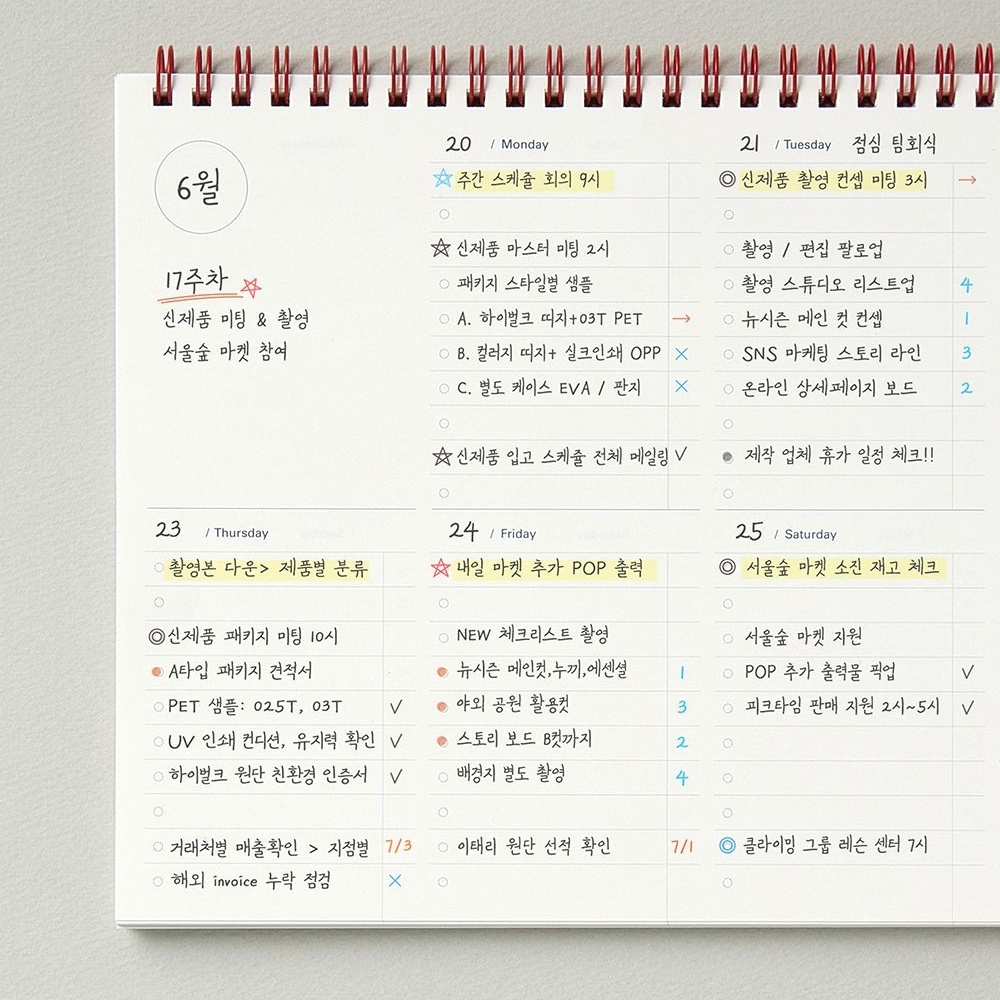 6월
17주차
신제품 미팅 & 촬영
서울숲 마켓 참여
20 / Monday
주간 스케쥴 회의 9시
신제품 마스터 미팅 2시
패키지 스타일별 샘플
A. 하이벌크 띠지+03T PET →
B. 컬러지 띠지+ 실크인쇄 OPP ×
C. 별도 케이스 EVA / 판지 ×
신제품 입고 스케쥴 전체 메일링 ✓
21 / Tuesday 점심 팀회식
신제품 촬영 컨셉 미팅 3시 →
촬영 / 편집 팔로업
촬영 스튜디오 리스트업 4
뉴시즌 메인 컷 컨셉 1
SNS 마케팅 스토리 라인 3
온라인 상세페이지 보드 2
제작 업체 휴가 일정 체크!!
23 / Thursday
촬영본 다운> 제품별 분류
신제품 패키지 미팅 10시
A타입 패키지 견적서
PET 샘플: 025T, 03T ✓
UV 인쇄 컨디션, 유지력 확인 ✓
하이벌크 원단 친환경 인증서 ✓
거래처별 매출확인 > 지점별 7/3
해외 invoice 누락 점검 ×
24 / Friday
내일 마켓 추가 POP 출력
NEW 체크리스트 촬영
뉴시즌 메인컷,누끼,에센셜 1
야외 공원 활용컷 3
스토리 보드 B컷까지 2
배경지 별도 촬영 4
이태리 원단 선적 확인 7/1
25 / Saturday
서울숲 마켓 소진 재고 체크
서울숲 마켓 지원
POP 추가 출력물 픽업 ✓
피크타임 판매 지원 2시~5시 ✓
클라이밍 그룹 레슨 센터 7시